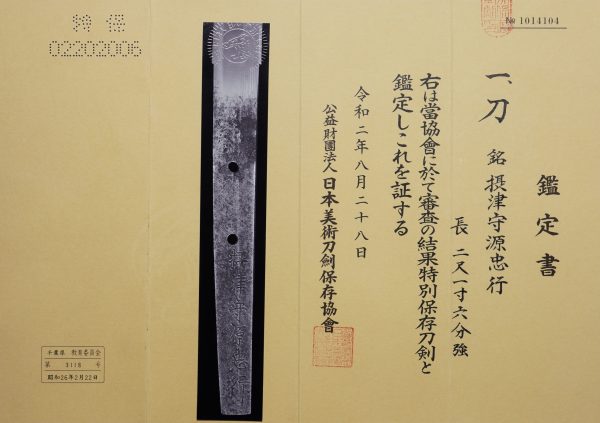 № 1014104
鑑定書
一、刀 銘 摂津守源忠行
長 二尺一寸六分強
右は當協會に於て審査の結果特別保存刀剣と
鑑定しこれを証する
令和二年八月二十八日
公益財團法人 日本美術刀劍保存協會
特保
02202006
千葉縣 教育委員会
第 3118 号
昭和26年2月22日